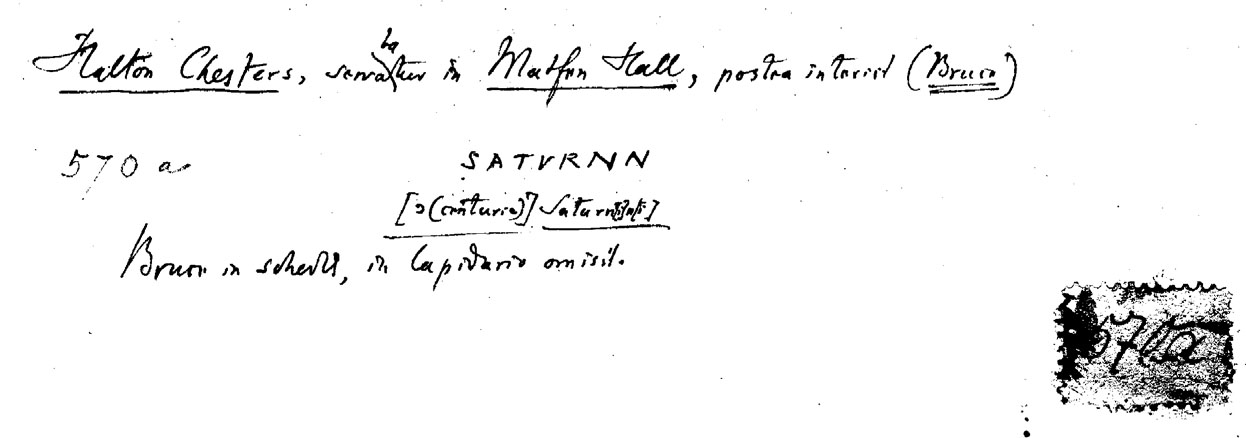 Halton Chesters, servabatur in Matfen Hall, postea interiit (Bruce)
570 a
SATVRNN
[Ɔ(centuria)] Saturn[i]n[i]
Bruce in schedis, in Lapidario omisit.
570a